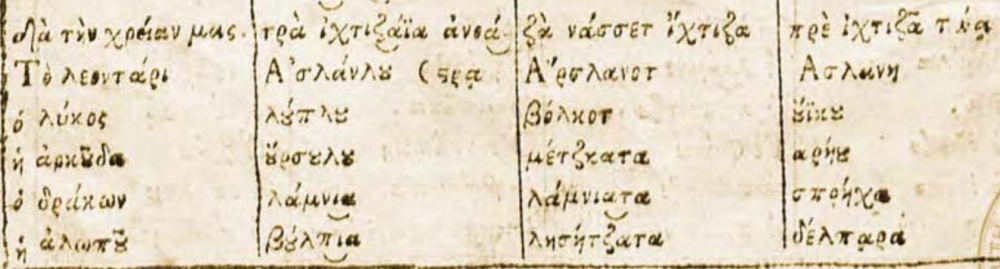 διὰ τὴν χρείαν μας. τρὰ ἰχτιζάϊα ἀνοά- ζὰ νάσσετ ἴχτιζα πρὲ ἰχτιζᾶ τ
Τὸ λεοντάρι Ἀσλάνλȣ (ςρα Ἄρσλανοτ Ασλάνη
ὁ λύκος λȣ́πλȣ βόλκοτ ȣ̈ίκȣ
ἡ ἀρκοῦδα ȣ̓́ρσȣλȣ μέτζκατα αρήȣ
ὁ δράκων λάμνια λάμνιατα
ἡ ἀλωπȣ͂ βȣ́λπια λησήτζατα δέλπαρα